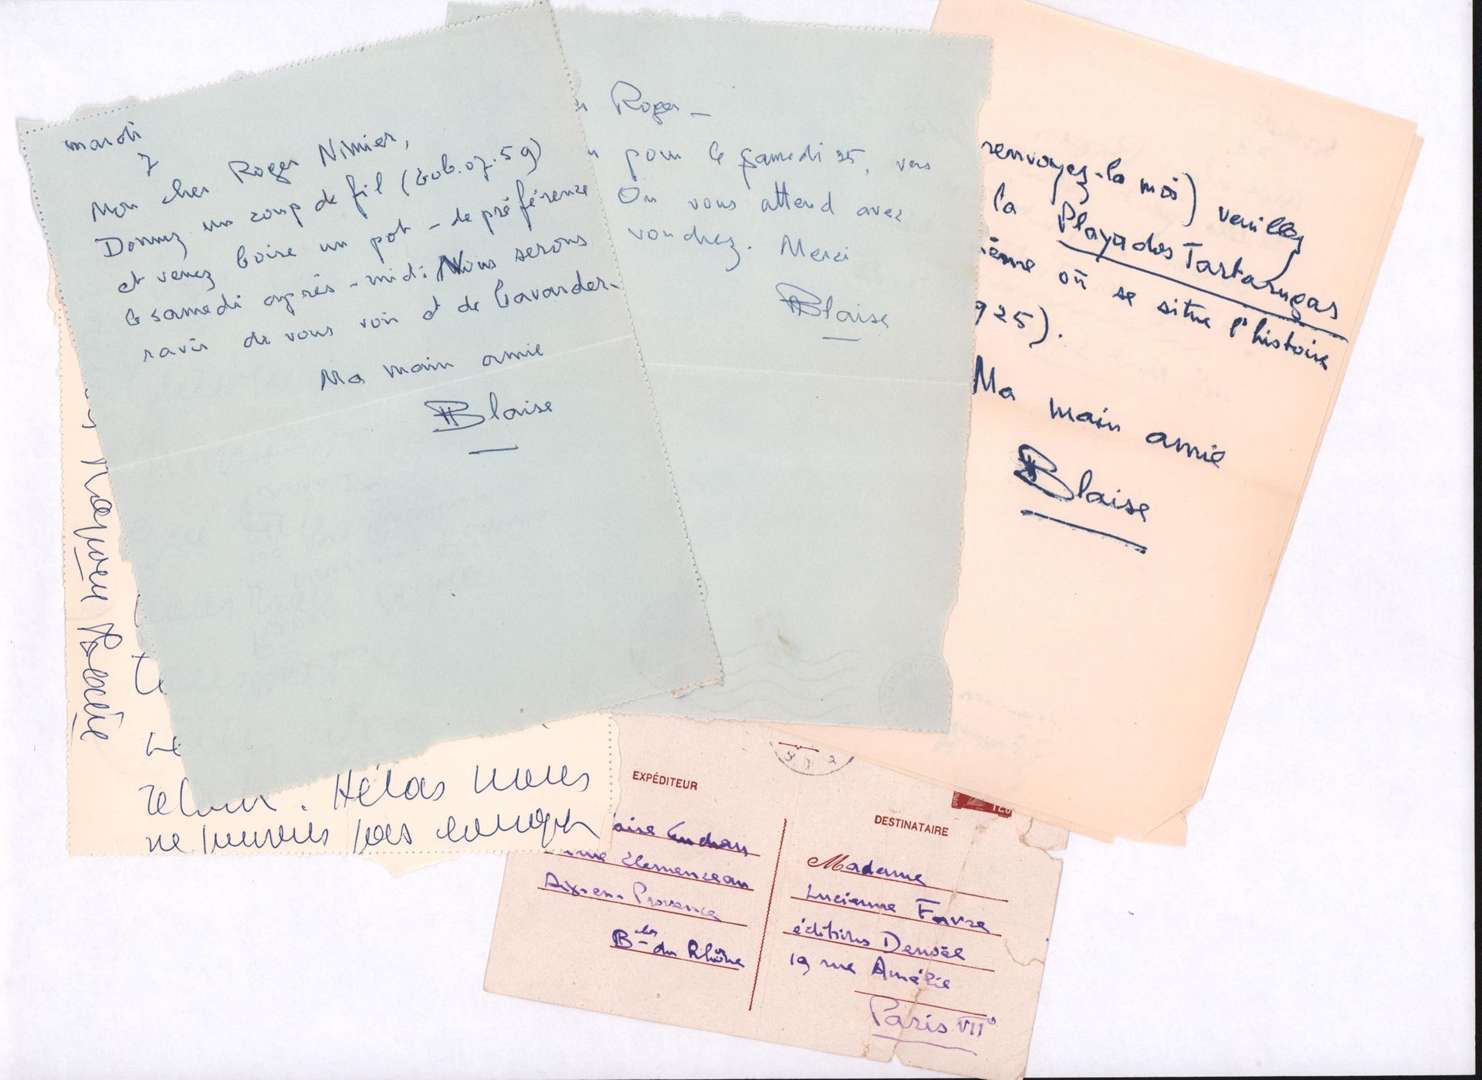 mardi
7
Mon cher Roger Nimier,
Donnez un coup de fil (Gob.07.59)
et venez boire un pot - de préférence
le samedi après-midi. Nous serons
ravis de vous voir et de bavarder.
Ma main amie
Blaise
Roger -
pour le samedi 25, vers
On vous attend avec
voudrez. Merci
Blaise
renvoyez-la moi) veuillez
la Playa dos Tartarugas
où se situe l'histoire
925).
Ma main amie
Blaise
Hélas nous
ne pouvons pas
EXPÉDITEUR
aise Cendrars
Clemenceau
Aix-en-Provence
B-les-du Rhône
DESTINATAIRE
Madame
Lucienne Favre
éditions Denoël
19 rue Amélie
Paris VII°